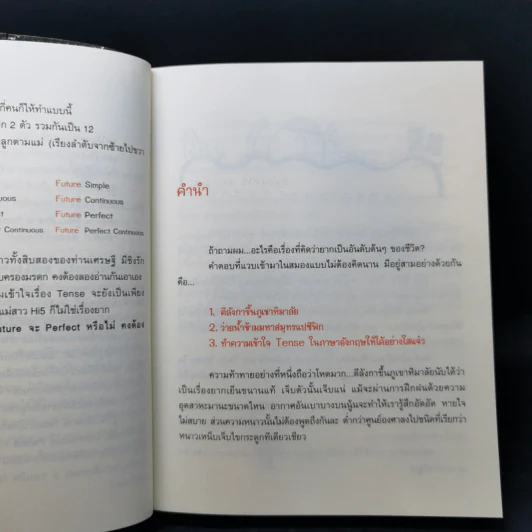 กี่คนก็ให้ทำแบบนี้
ก 2 ตัว รวมกันเป็น 12
ลูกตามแม่ (เรียงลำดับจากซ้ายไปขวา
Future Simple
uous Future Continuous
t Future Perfect
Continuous Future Perfect Continuous
าวทั้งสิบสองของท่านเศรษฐี มีชิงรัก
บครองมรดก คงต้องลองอ่านกันเอาเอง
มเข้าใจเรื่อง Tense จะยังเป็นเพียง
แม่สาว Hi5 ก็ไม่ใช่เรื่องยาก
uture จะ Perfect หรือไม่ คงต้อง
คำนำ
ถ้าถามผม...อะไรคือเรื่องที่คิดว่ายากเป็นอันดับต้นๆ ของชีวิต?
คำตอบที่แวบเข้ามาในสมองแบบไม่ต้องคิดนาน มีอยู่สามอย่างด้วยกัน
คือ...
1. ตีลังกาขึ้นภูเขาหิมาลัย
2. ว่ายน้ำข้ามมหาสมุทรแปซิฟิก
3. ทำความเข้าใจ Tense ในภาษาอังกฤษให้ได้อย่างใสแจ๋ว
ความท้าทายอย่างที่หนึ่งถือว่าโหดมาก...ตีลังกาขึ้นภูเขาหิมาลัยนับได้ว่า
เป็นเรื่องยากเย็นขนานแท้ เจ็บตัวนั้นเจ็บแน่ แม้จะผ่านการฝึกฝนด้วยความ
อุตสาหะมานะขนาดไหน อากาศอันเบาบางบนนู้นจะทำให้เรารู้สึกอึดอัด หายใจ
ไม่สบาย ส่วนความหนาวนั้นไม่ต้องพูดถึงกันละ ต่ำกว่าศูนย์องศาลงไปชนิดที่เรียกว่า
หนาวเหน็บเจ็บไขกระดูกทีเดียวเชียว